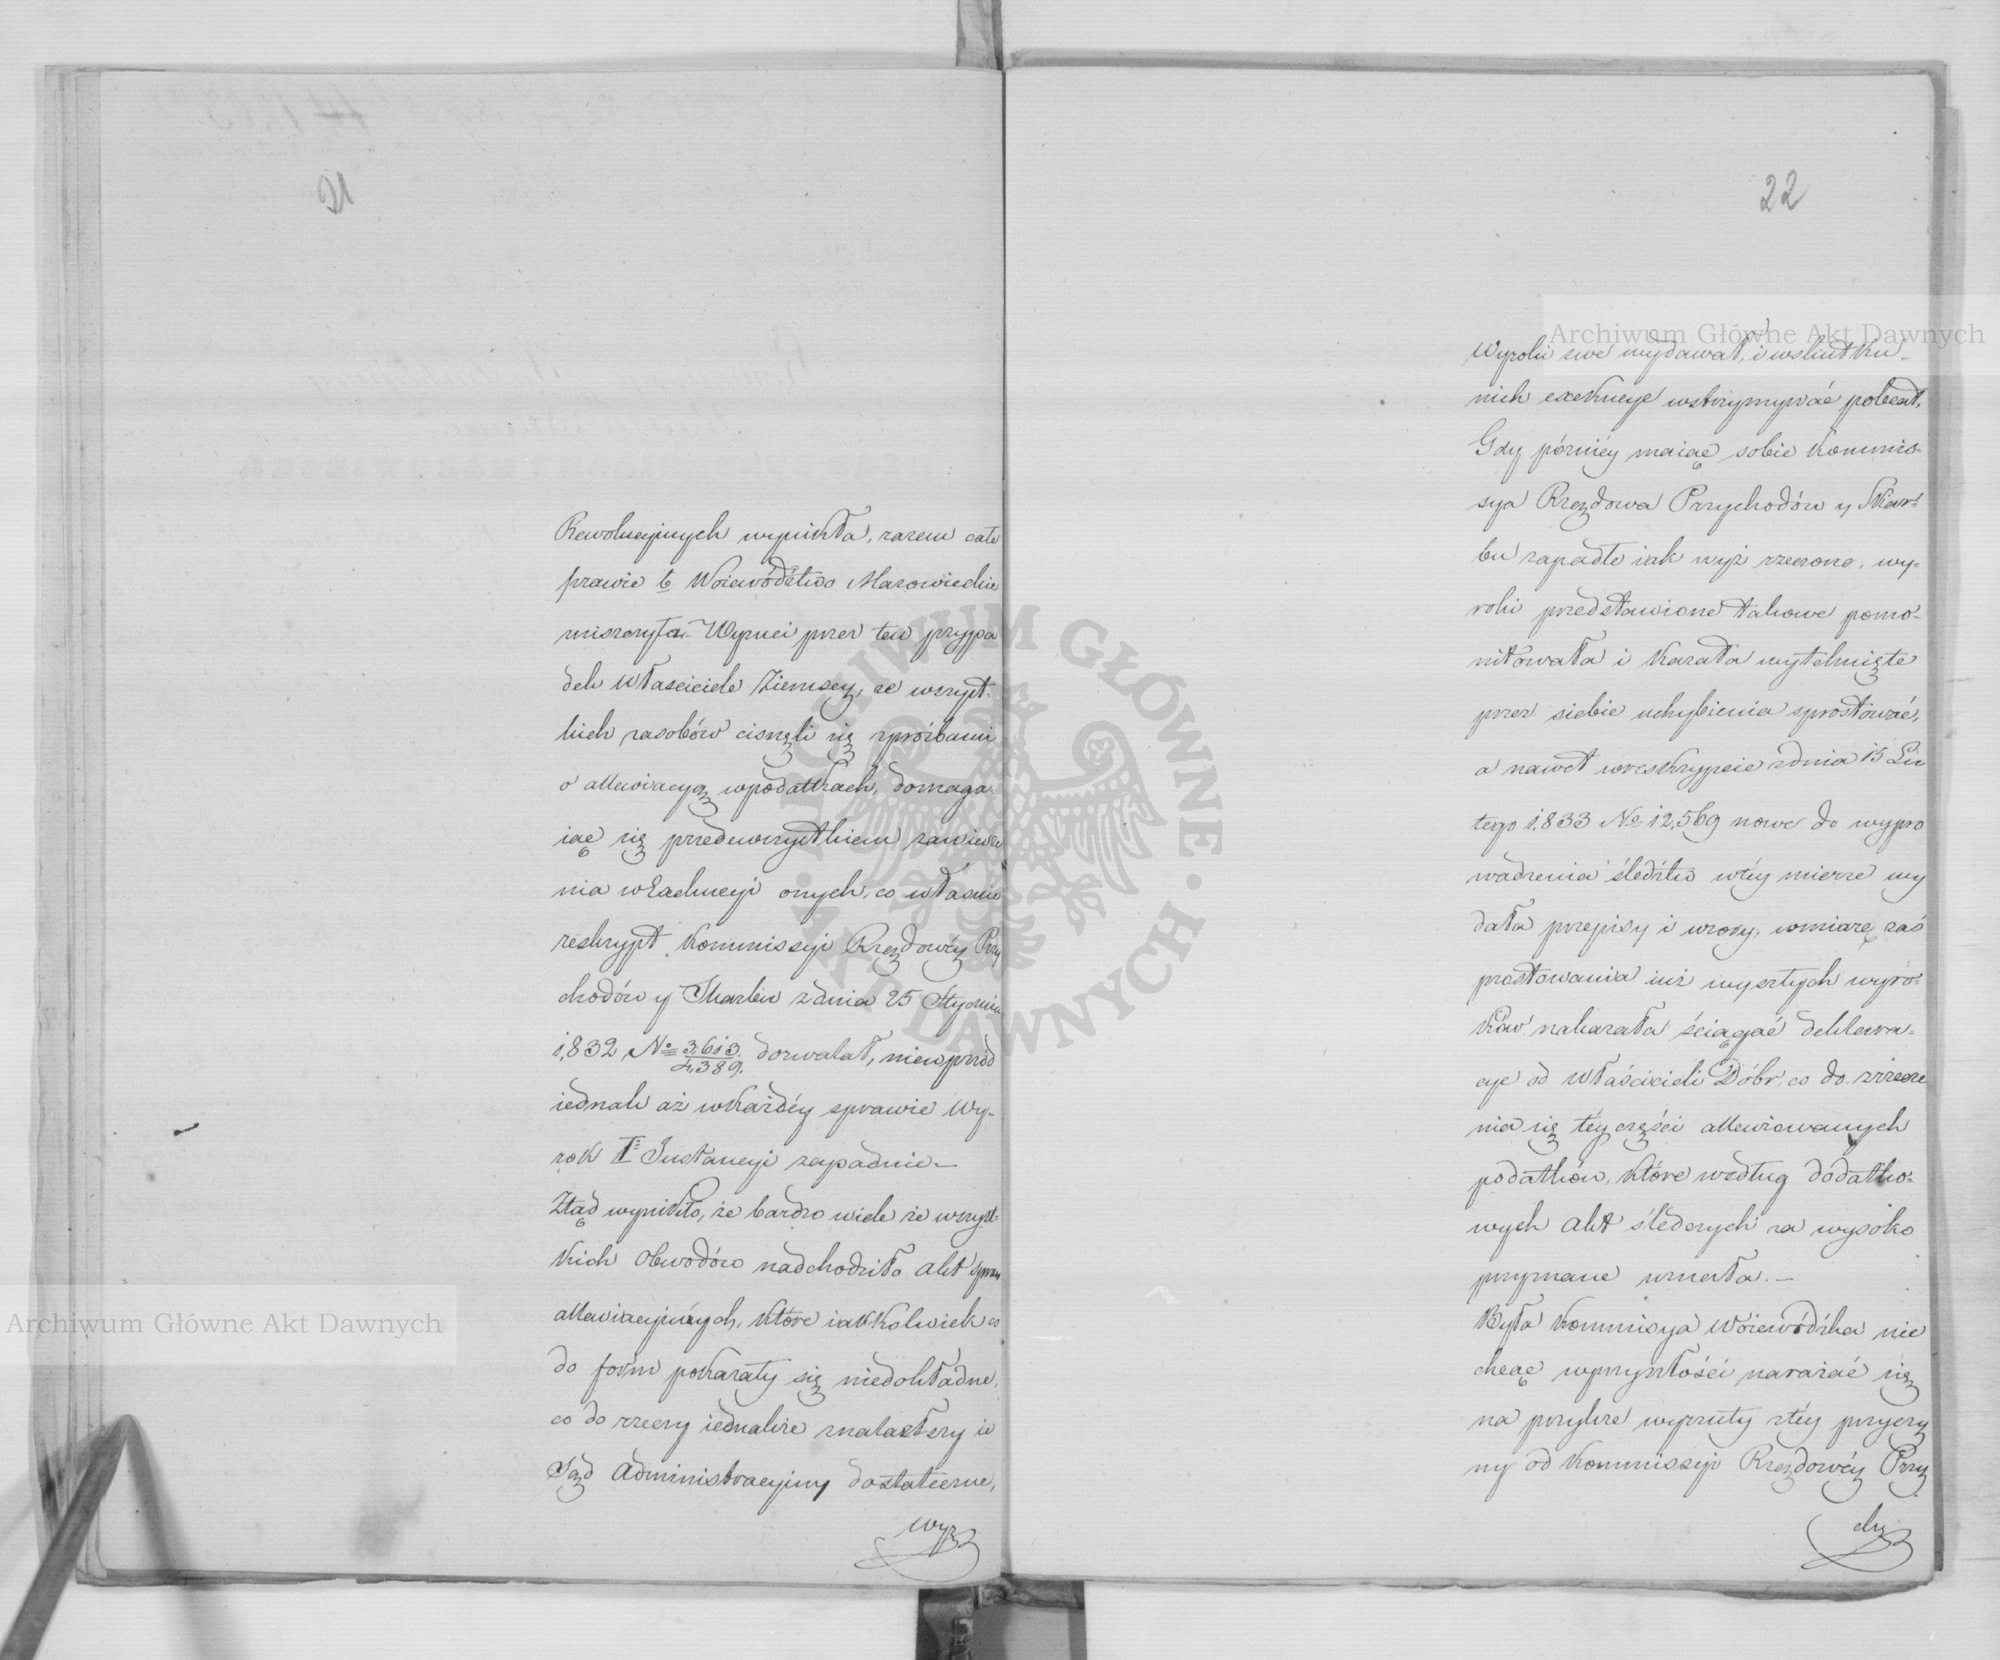 Rewolucyjnych wynikła, razem całe
prawie to Woiewództwo Mazowieckie
zniszczyła. Wyzuci przez ten przypa
dek Właściciele Ziemscy, ze wszyst-
kich zasobów cisnęli się z prośbami
o allewiacyą w podatkach, domaga-
iąc się przedewszystkiem zawiesze
nia w Exekucyi onych, co właśnie
reskrypt Kommissyi Rządowéy Przy
chodów y Skarbu z dnia 25 Stycznia
1,832 No 3,613/4,389. dozwalał, nie wprzód
iednak aż w każdéy sprawie Wy-
rok I Instancyi zapadnie.—
Ztąd wynikło, że bardzo wiele ze wszyst-
kich Obwodów nadchodziło akt spraw
allewiacyjnych, które iakkolwiek co
do form pokazały się niedokładne,
co do rzeczy iednakże znalazłszy ie
Sąd Administracyjny dostateczne,
Wyr
22
Wyroki swe wydawał, i w skutku
nich exekucye wstrzymywać polecał.
Gdy późniéy maiąc sobie Kommis-
sya Rządowa Przychodów y Skar-
bu zapadłe iak wyż rzeczono, wy-
roki przedstawione takowe pomo-
nitowała i kazała wytchnięte
przez siebie uchybienia sprostować,
a nawet w reskrypcie z dnia 15 Lu
tego 1,833 No 12,569 nowe do wypro
wadzenia śledztw w téy mierze wy
dała przepisy i wzory, w miarę zaś
prostowania iuż wyszłych wyro-
ków nakazała ściągać deklara-
cye od Właścicieli Dóbr, co do zrzecze
nia się téy części allewiowanych
podatków, które według dodatko-
wych akt śledczych za wysoko
przyznane uznała.—
Była Kommisya Woiewódzka nie
chcąc w przyszłości narażać się
na przykre wyrzuty z téy przyczy
ny od Kommissyi Rządowéy Przy
cho
Archiwum Główne Akt Dawnych
Archiwum Główne Akt Dawnych
ARCHIWUM GŁÓWNE AKT DAWNYCH